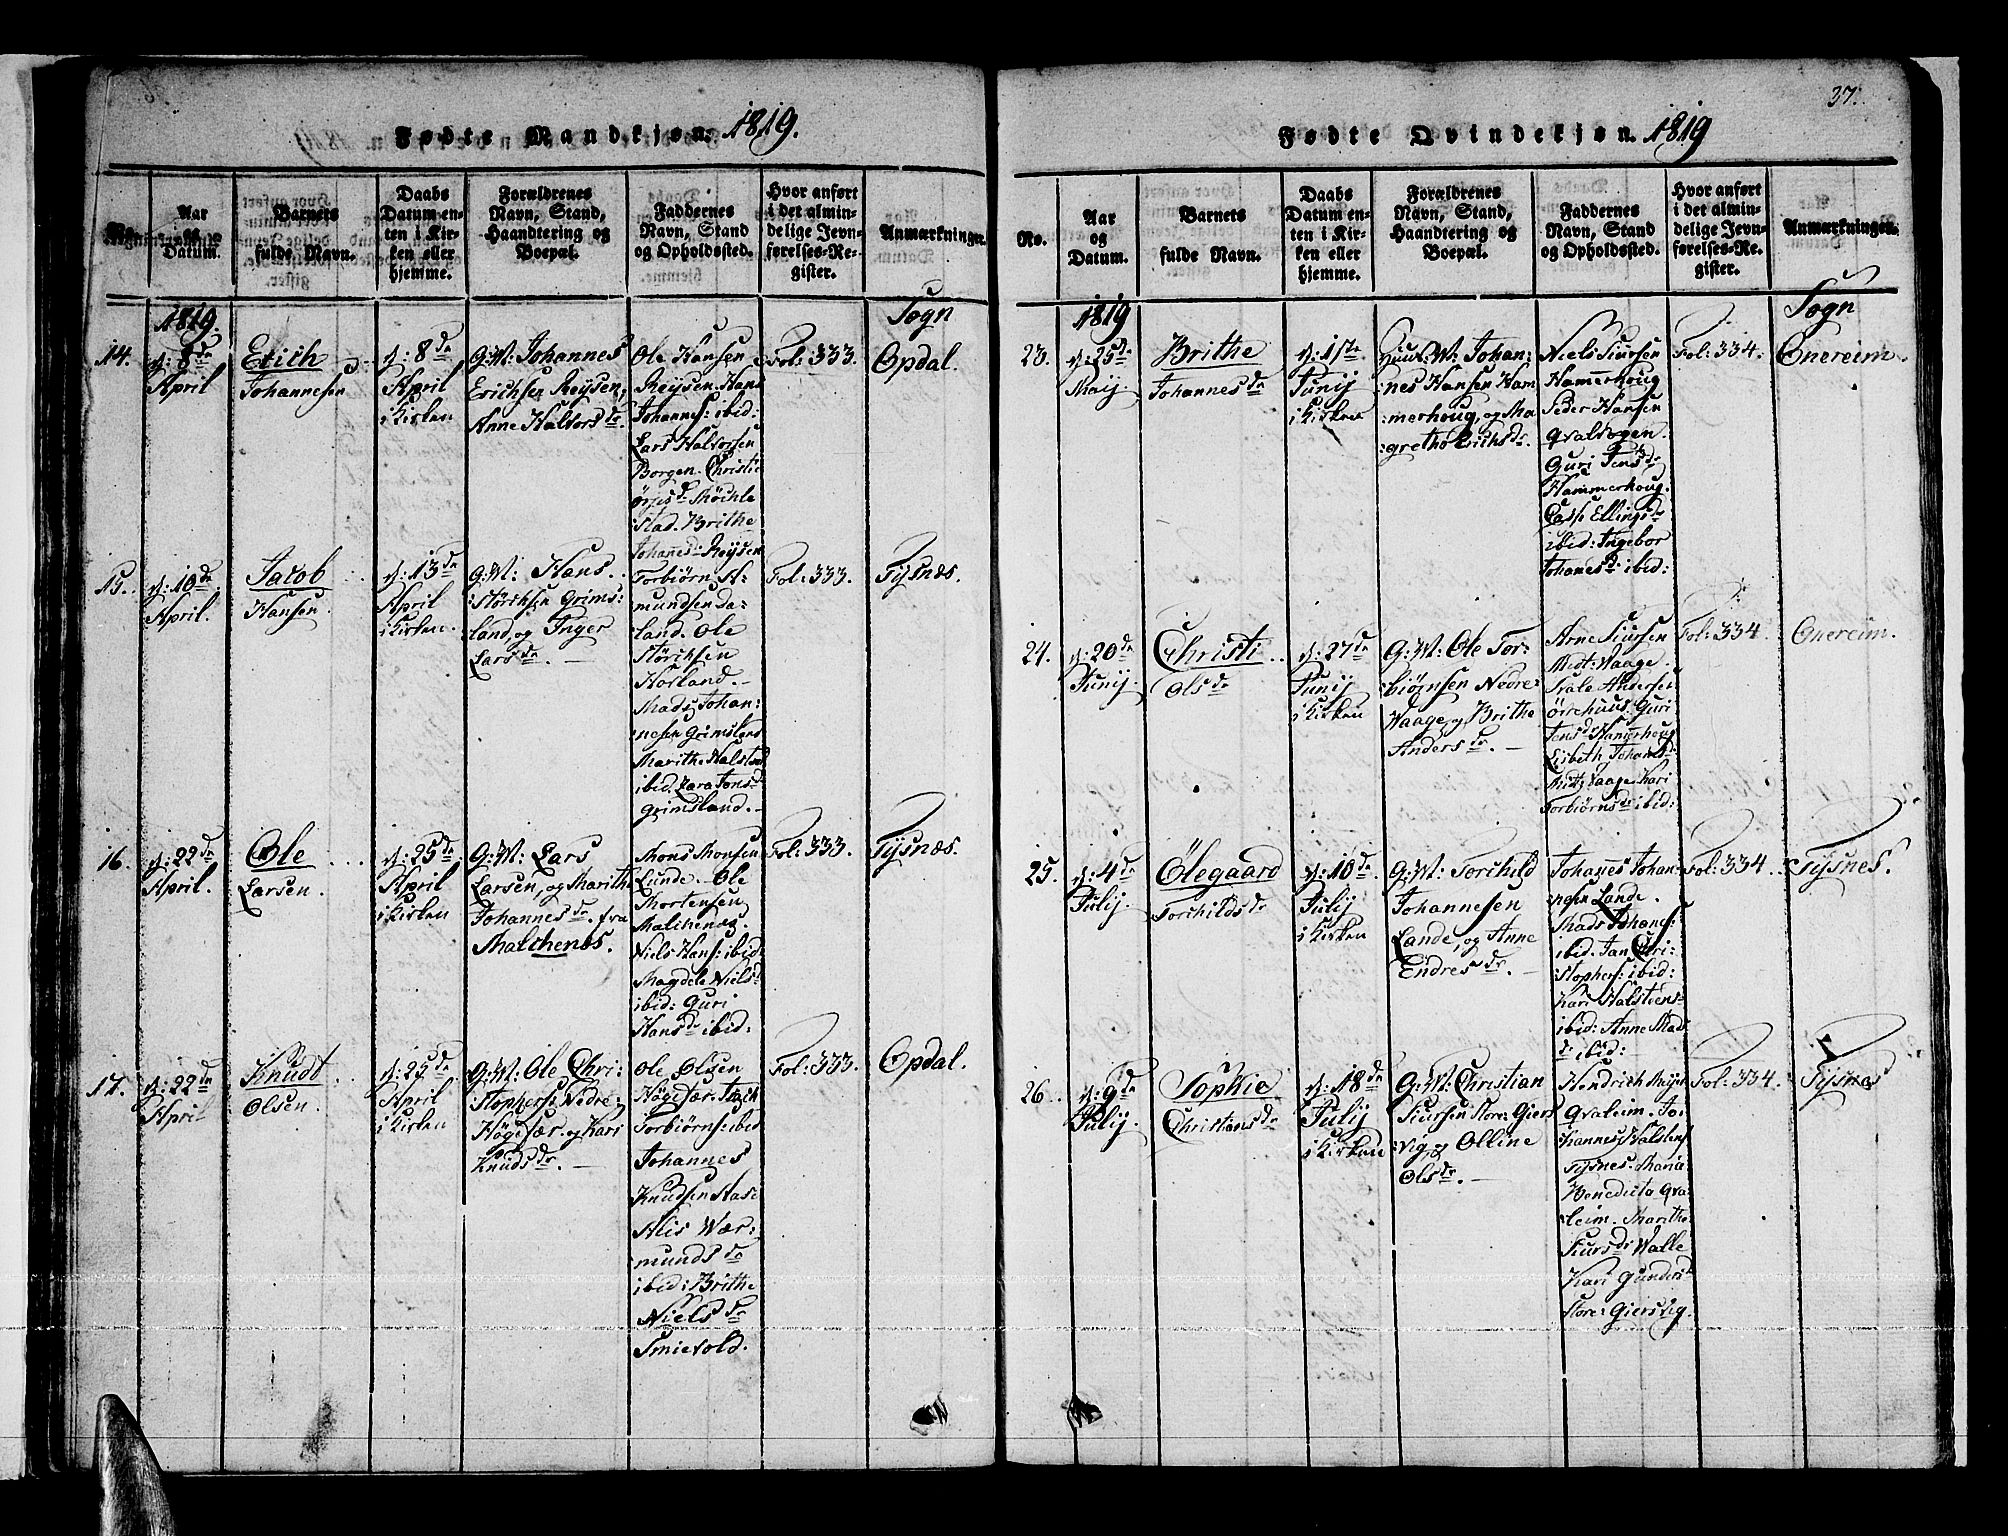 Fødte Mandkjøn. 1819.
No.
Aar
og
Datum.
Barnets
fulde Navn.
Daabs
Datum en-
ten i Kir-
ken eller
hjemme.
Forældrenes
Navn, Stand,
Haandtering og
Boepæl.
Faddernes
Navn, Stand
og Opholdssted.
Hvor anført
i det almin-
delige Jevn-
førelses-Re-
gister.
Anmærkninger.
1819.
Sogn
14.
d: 8de
April
Erich
Johannesen
d: 8de
April
i Kirken
G: M: Johannes
Erichsen Reÿsen,
Anne Halvorsdr.
Ole Hansen
Reÿsen. Hans
Johannes: ibid:
Lars Halvorsen
Borgen. Christi
Stad. Brithe
Johanes: Reÿsen
Fol: 333.
Opdal.
15.
d: 10de
April.
Jacob
Hansen.
d: 13de
April
i Kirken.
G: M: Hans
Størchsen Grims:
land, og Inger
Larsdr.
Torbiørn A-
mundsen Da-
land. Ole
Størchsen
Hofland.
Mads Johan:
nesen Grimsland
Marithe Halsteensd
ibid. Zara Jonsd
Grimsland.
Fol: 333.
Tÿsnæs.
16.
d: 22de
April.
Ole
Larsen.
d: 25de
April
i Kirken
G: M: Lars
Larsen, og Marithe
Johannesdr. fra
Malchenes.
Mons Monsen
Lunde. Ole
Mortensen
Malchenes.
Niels Hans: ibid:
Magdele Nielsd:
ibid: Guri
Hansdr ibid:
Fol: 333.
Tÿsnæs.
17.
d: 22de
April
Knudt
Olsen.
d: 25de
April
i Kirken
G: M: Ole Chri:
stophers: Nedre:
Høgesær, og Kari
Knudsdr.
Ole Olsen
Høgesær.
Torbiørns: ibid
Johannes
Knudsen
Alis Wær:
mundsdr
ibid: Brithe
Nielsdr
Smievold.
Fol: 333.
Opdal.
37.
Fødte Qvindekjøn. 1819
No.
Aar
og
Datum.
Barnets
fulde Navn.
Daabs
Datum en-
ten i Kir-
ken eller
hjemme.
Forældrenes
Navn, Stand,
Haandtering og
Boepæl.
Faddernes
Navn, Stand
og Opholdssted.
Hvor anført
i det almin-
delige Jevn-
førelses-Re-
gister.
Anmærkninger.
1819
Sogn
23.
d: 25de
Maij.
Brithe
Johannesdr
d: 1ste
Junij
i Kirken
Huus M: Johan:
nes Hansen Ham
merhoug, og Ma
:grethe Erichsdr.
Niels Siursen
Hammerhoug
Peder Hansen
Qvalvogen.
Guri Jensdr
Hammerhoug.
Ellingsdr
ibid: Ingebor
Johanesd: ibid:
Fol: 334.
Enereim.
24.
d: 20de
Junij.
Christi
Olsdr
d: 27de
Junij
i Kirken
G: M: Ole Tor-
biørnsen Nedre:
Waage, og Brithe
Andersdr.
Arne Siursen
Midt: Waage.
Ørrehuus. Guri
Jensd: Hamerhoug
Lisbeth Johanesd:
Midt: Vaage. Kari
Torbiørnsdr ibid:
Fol: 334.
Enereim.
25.
d: 4de
Julij.
Ølegaard
Torchildsdr
d: 10de
Julij
i Kirken
G: M: Torchild
Johannesen
Lande, og Anne
Endresdr.
Johanes Johan-
nesen Lande.
Mads Johanes:
ibid. Jan Chri:
stophers: ibid:
Kari Halsteens-
ibid: Anne Mads
dr ibid:
Fol: 334
Tÿsnes.
26.
d: 9de
Julij.
Sophie
Christiansdr
d: 18de
Julij
i Kirken
G: M: Christian
Siursen Store: Giers
vig, og Olline
Olsdr.
Hendrich
Qvaleim. Jo-
hannes Halstens
Tÿsnes. Maria
Benedicta Qva-
leim. Marithe
Siursdr Walle
Kari Gundersd
Store: Giersvig.
Fol: 334.
Tÿsnes